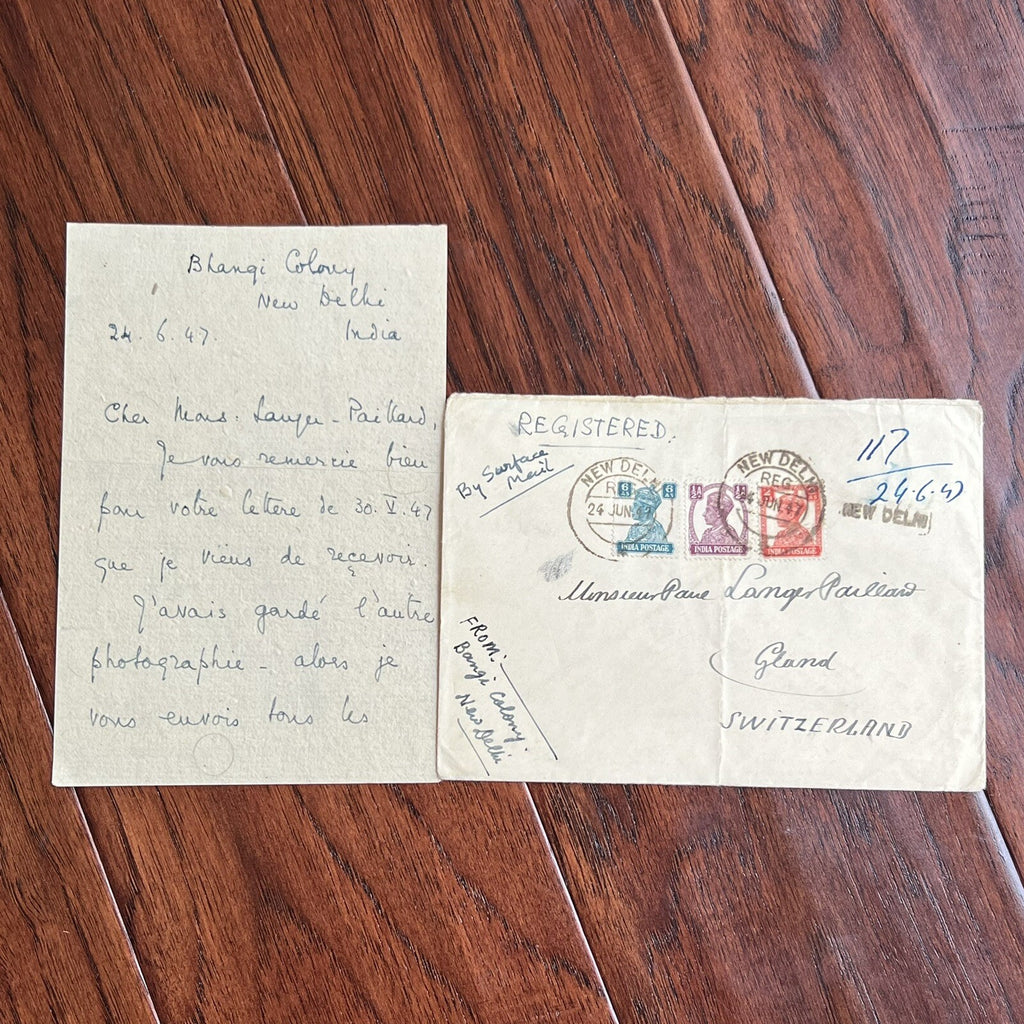 Bhangi Colony
New Delhi
24.6.47.
India
Cher Mons. Langer-Paillard,
Je vous remercie bien
pour votre lettere de 30.V.47
que je viens de reçevoir.
J'avais gardé l'autre
photographie - alors je
vous envois tous les
REGISTERED.
By Surface
Mail
117
24.6.47
NEW DELHI
NEW DELHI
24 JUN.47
NEW DELHI
REG.
24 JUN.47
6 AS
6 AS
INDIA POSTAGE
½ A
½ A
INDIA POSTAGE
INDIA POSTAGE
Monsieur Langer Paillard
Gland
SWITZERLAND
FROM:-
Bangi Colony.
New Delhi